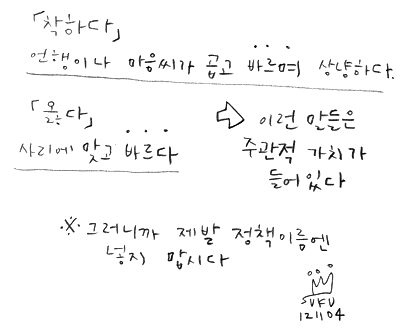 「착하다」
언행이나 마음씨가 곱고 바르며 상냥하다.
「옳다」
사리에 맞고 바르다
⇨ 이런 말들은
주관적 가치가
들어있다
※ 그러니까 제발 정책이름엔
넣지 맙시다
SVFV
121104